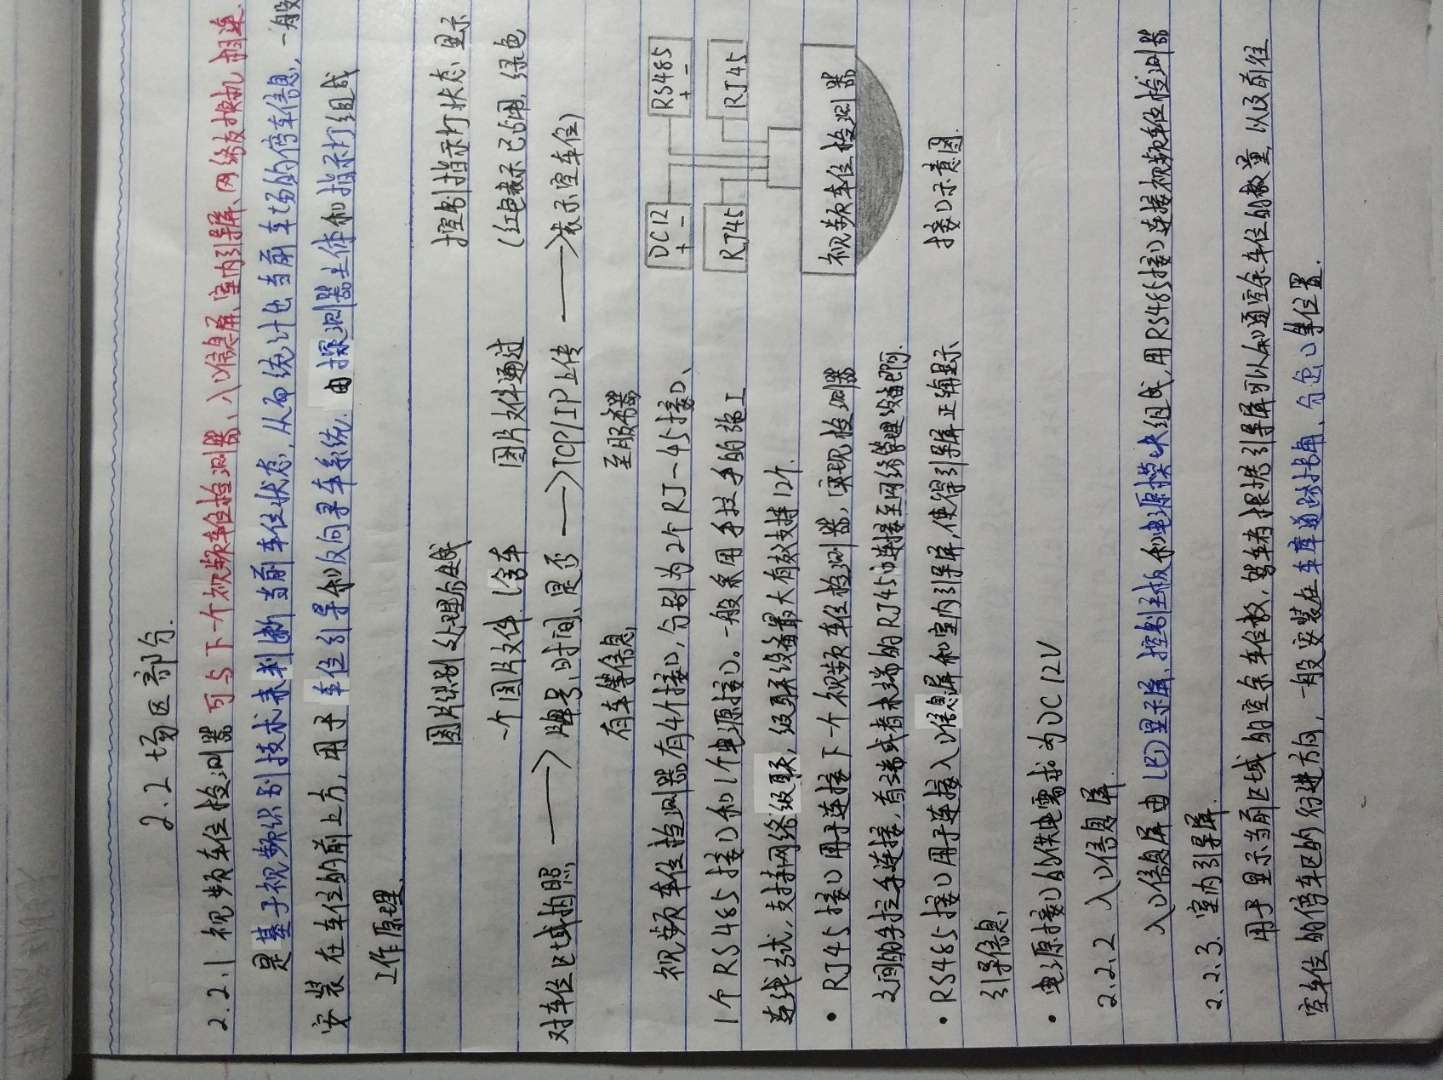 2.2 场区部分.
2.2.1 视频车位检测器 可与下一个视频车位检测器、入口信息屏、室内引导屏、网络交换机相连.
是基于视频识别技术来判断当前车位状态,从而统计出当前车场的停车信息,一般
安装在车位的前上方,用于车位引导和反向寻车系统. 由探测器主体和指示灯组成
工作原理.
对车位区域拍照. → 图片识别处理后生成一个图片文件.(含车牌号、时间、是否有车等信息, → 图片文件通过TCP/IP上传至服务器 → 控制指示灯状态显示(红色表示已占用,绿色表示空车位)
视频车位检测器有4个接口,分别为2个RJ-45接口、
1个RS485接口和1个电源接口。一般采用手拉手的施工
连线方式,支持网络级联,级联设备最大有效支持12个.
• RJ45接口用于连接下一个视频车位检测器,实现检测器
之间的手拉手连接,首端或者末端的RJ45口连接至网络管理设备即可.
• RS485接口用于连接入口信息屏和室内引导屏,使得引导屏正确显示
引导信息,
• 电源接口的供电需求为DC12V
DC12
+ -
RS485
+ -
RJ45
RJ45
视频车位检测器
接口示意图.
2.2.2 入口信息屏
入口信息屏由LED显示屏、控制主板和电源模块组成,用RS485接口连接视频车位检测器
2.2.3. 室内引导屏.
用于显示当前区域的空余车位数,驾车者根据引导屏可以知道空余车位的数量以及前往
空车位的停车区的行进方向,一般安装在车库道路拐角、分岔口等位置.